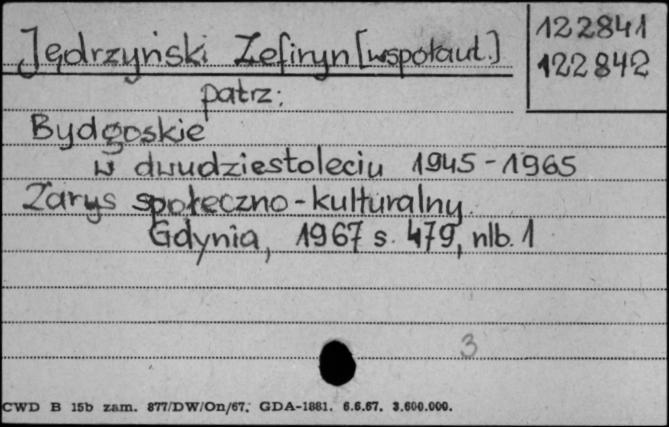 Jędrzyński Zefiryn [współaut.]
122841
122842
patrz:
Bydgoskie
w dwudziestoleciu 1945-1965
Zarys społeczno-kulturalny.
Gdynia, 1967 s. 479, nlb. 1
3
CWD B 15b zam. 877/DW/On/67. GDA-1881. 6.6.67. 3.600.000.